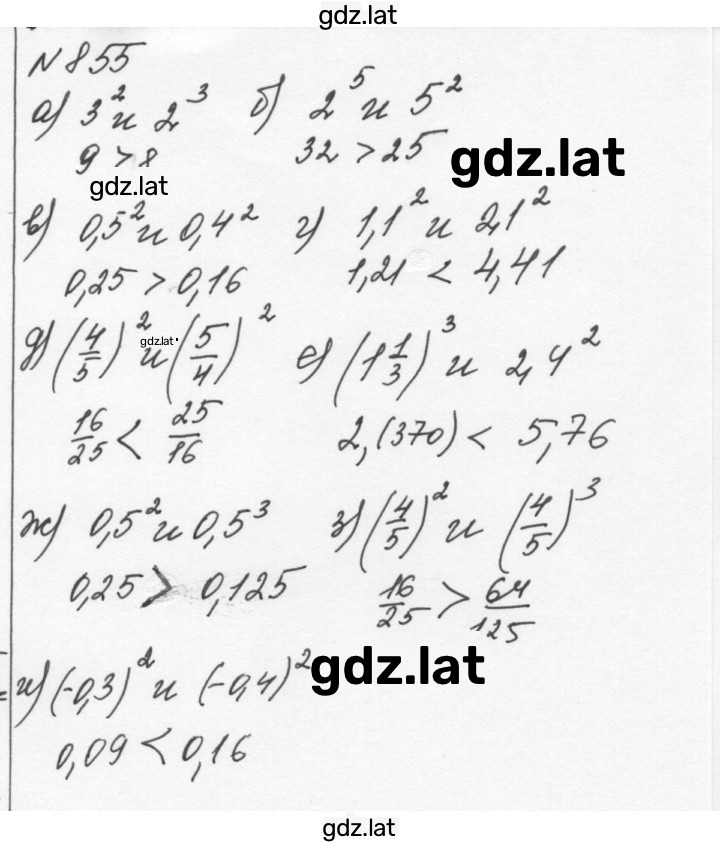 gdz.lat
№ 855
а) 3² и 2³ б) 2⁵ и 5²
9 > 8 32 > 25
gdz.lat
gdz.lat
в) 0,5² и 0,4² г) 1,1² и 2,1²
0,25 > 0,16 1,21 < 4,41
д) (4/5)² и (5/4)² е) (1 1/3)³ и 2,4²
gdz.lat
16/25 < 25/16 2,(370) < 5,76
ж) 0,5² и 0,5³ з) (4/5)² и (4/5)³
0,25 > 0,125 16/25 > 64/125
и) (-0,3)² и (-0,4)²
gdz.lat
0,09 < 0,16
gdz.lat